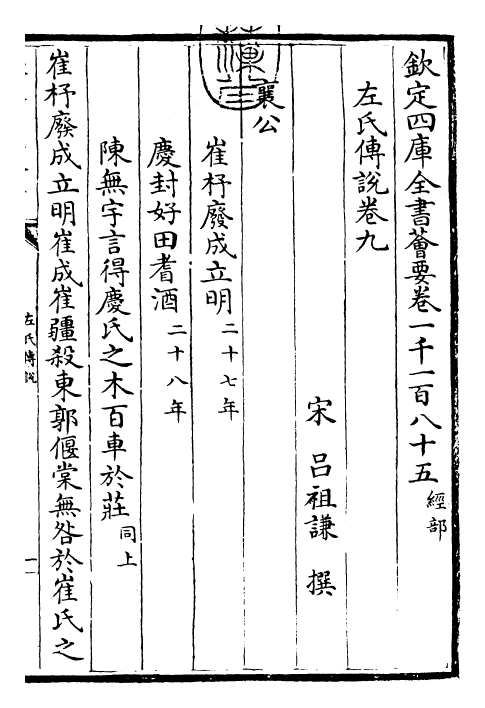 欽定四庫全書薈要卷一千一百八十五經部
左氏傳說卷九
宋 呂祖謙 撰
襄公
崔杼廢成立明二十七年
慶封好田耆酒二十八年
陳無宇言得慶氏之木百車於莊同上
崔杼廢成立明崔成崔疆殺東郭偃棠無咎於崔氏之
左氏傳說
一